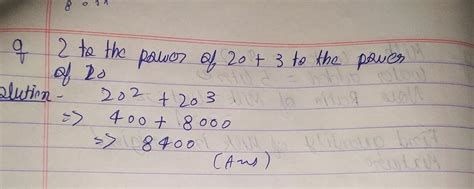 q 2 to the power of 20 + 3 to the power
of 20
olution - 20² + 20³
=> 400 + 8000
=> 8400
(Ans)